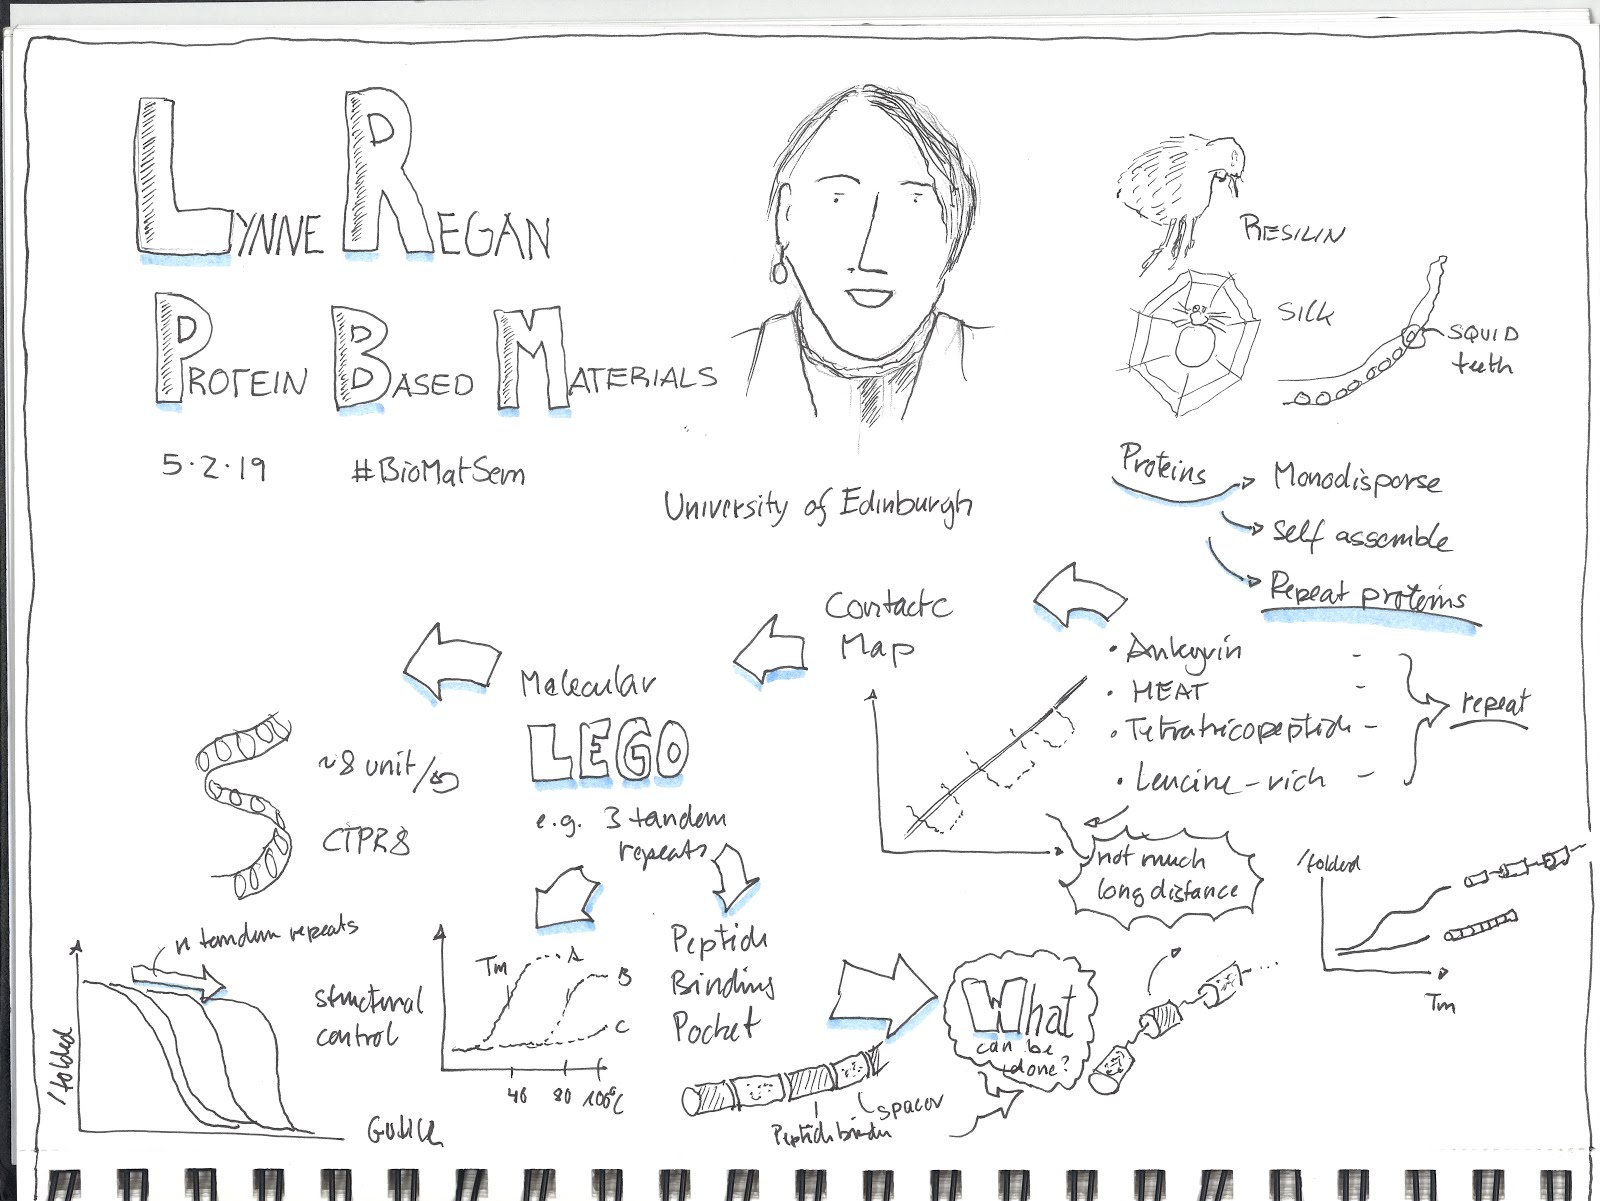 LYNNE REGAN
PROTEIN BASED MATERIALS
5·2·19 #BioMatSem
University of Edinburgh
RESILIN
SILK
SQUID
teeth
Proteins
Monodisperse
Self assemble
Repeat proteins
• Ankyrin -
• HEAT -
• Tetratricopeptide -
• Leucine-rich -
repeat
not much
long distance
Contact
Map
Molecular
LEGO
e.g. 3 tandem
repeats
~8 unit/
CTPR8
n tandem repeats
structural
control
/folded
GuHCl
Tm
A
B
C
40 80 100°C
Peptide
Binding
Pocket
spacer
Peptide binder
What
can be
done?
/folded
Tm